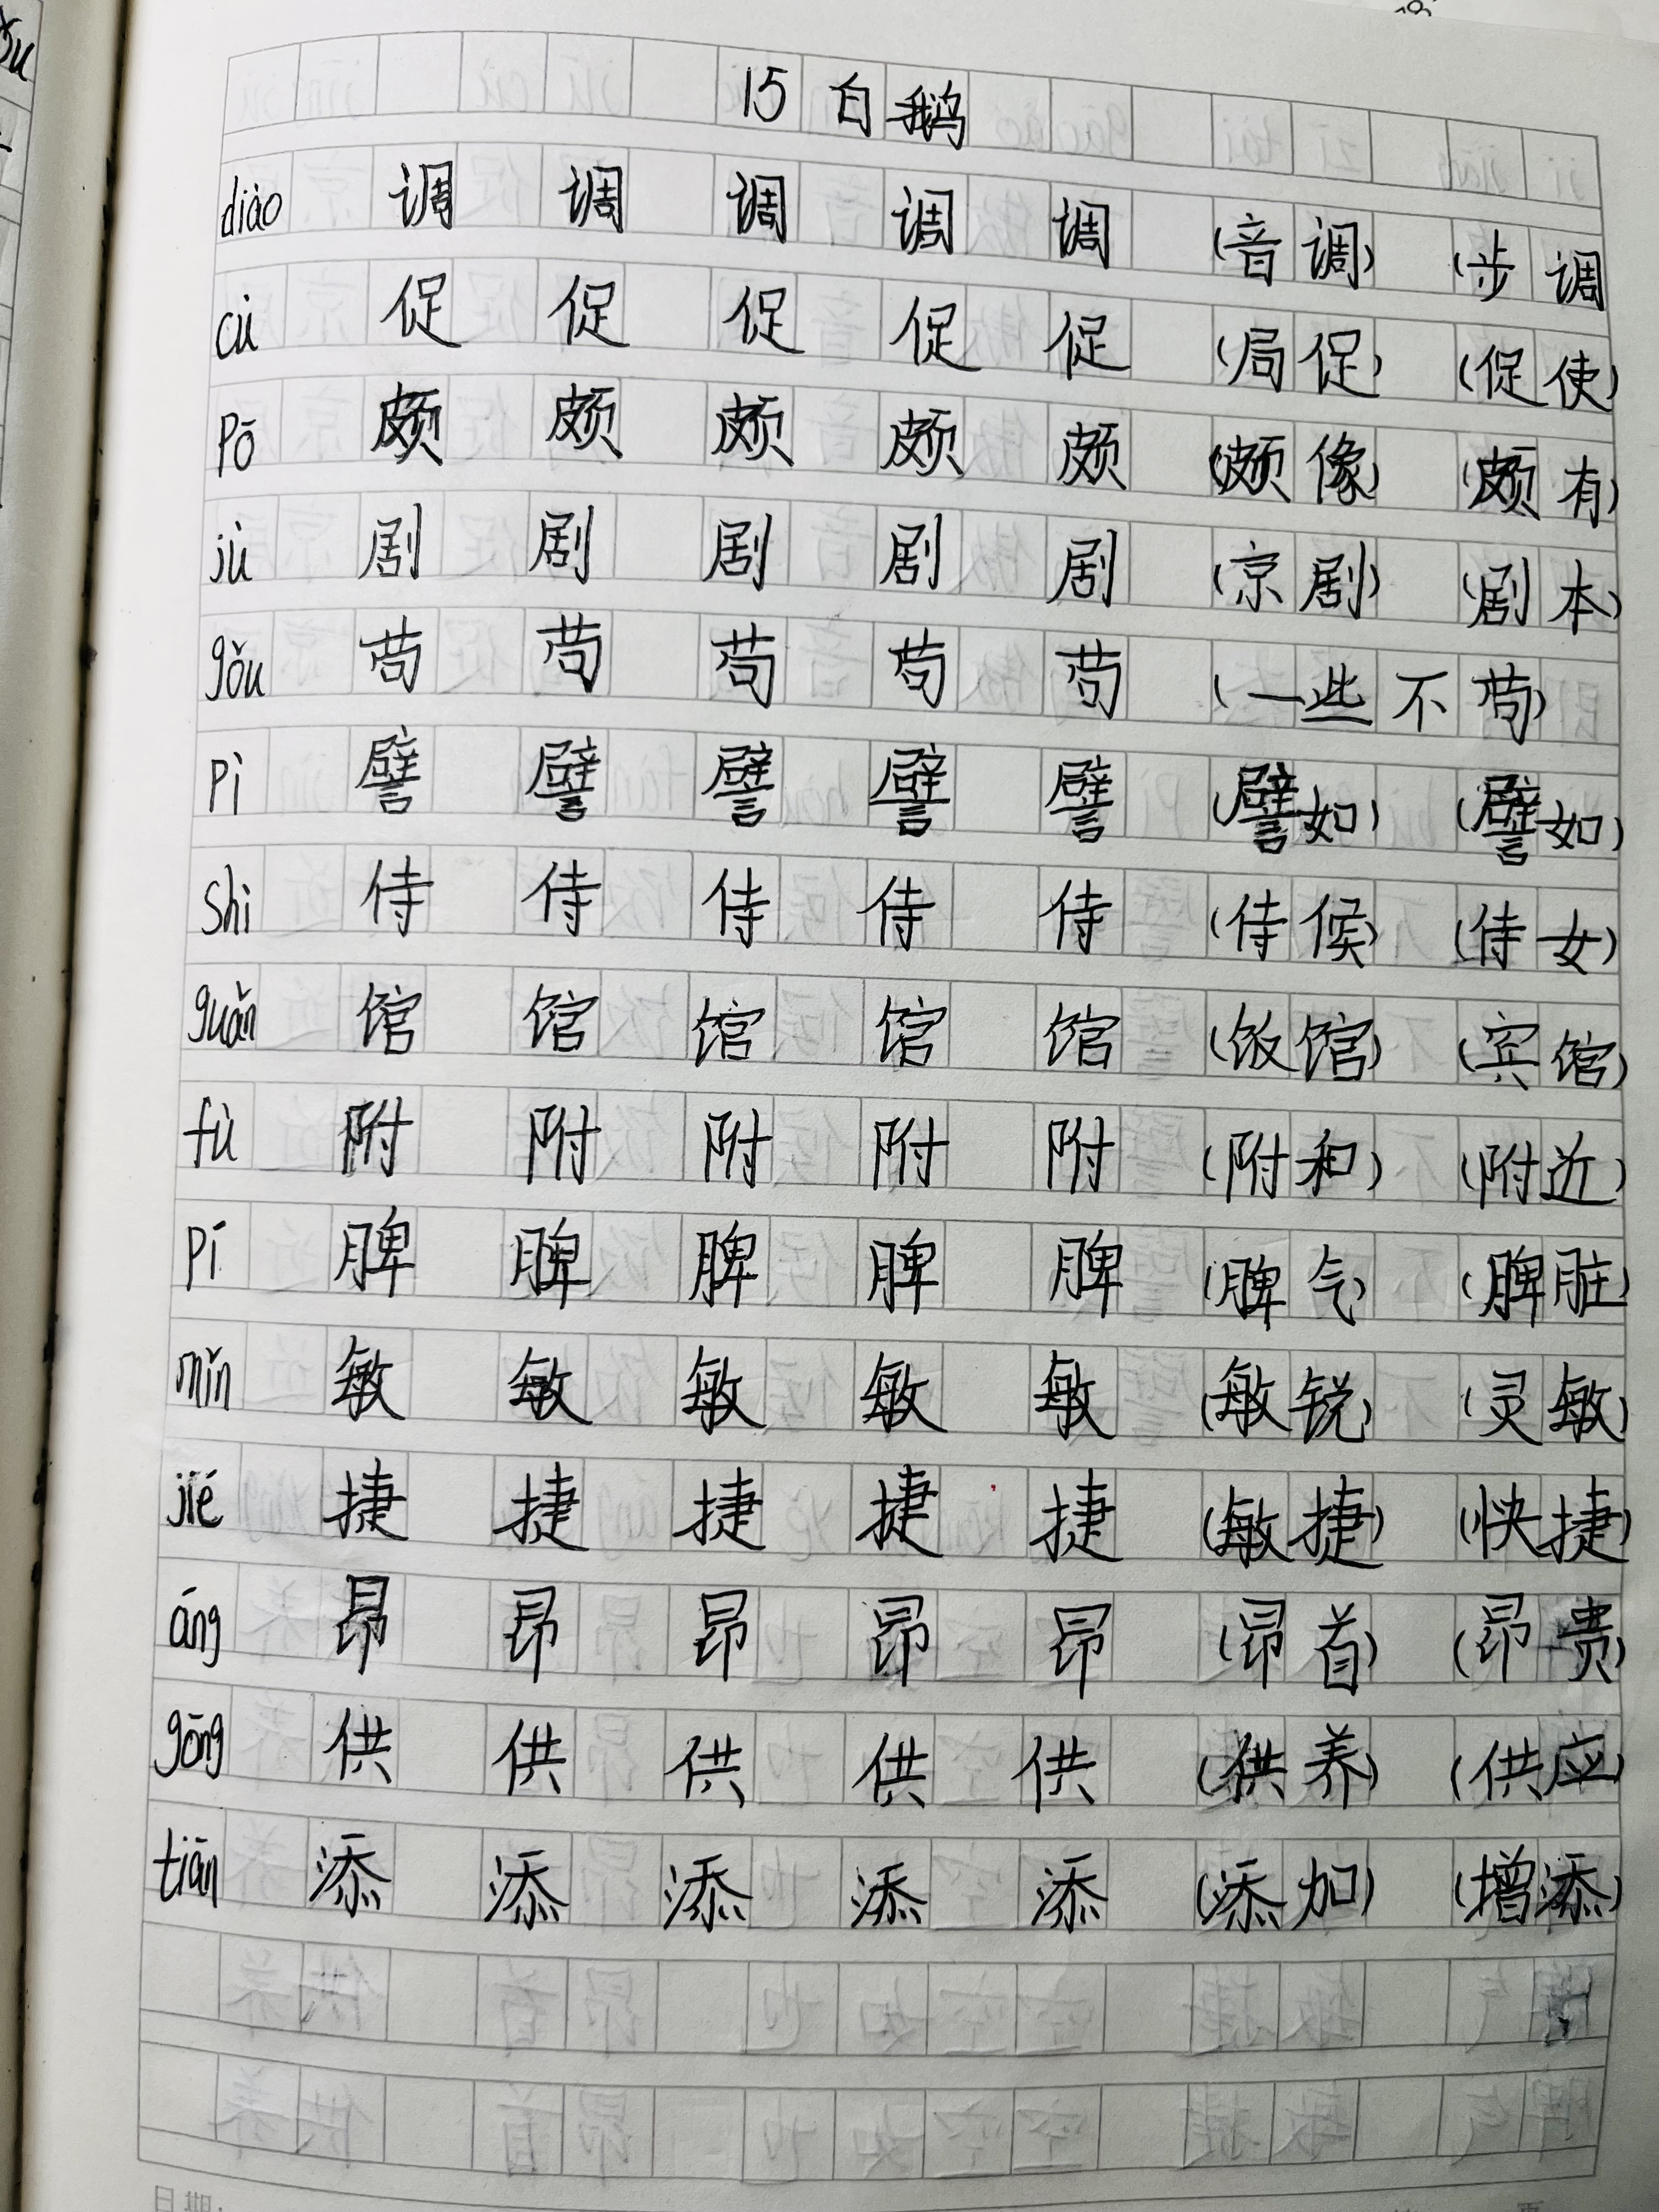 15 白鹅
diào 调 调 调 调 调 (音调) (步调
cù 促 促 促 促 促 (局促) (促使)
pō 颇 颇 颇 颇 颇 (颇像) (颇有)
jù 剧 剧 剧 剧 剧 (京剧) (剧本)
gǒu 苟 苟 苟 苟 苟 (一些不苟)
pì 譬 譬 譬 譬 譬 (譬如) (譬如)
shì 侍 侍 侍 侍 侍 (侍候) (侍女)
guǎn 馆 馆 馆 馆 馆 (饭馆) (宾馆)
fù 附 附 附 附 附 (附和) (附近)
pí 脾 脾 脾 脾 脾 (脾气) (脾脏)
mǐn 敏 敏 敏 敏 敏 (敏锐) (灵敏)
jié 捷 捷 捷 捷 捷 (敏捷) (快捷)
áng 昂 昂 昂 昂 昂 (昂首) (昂贵)
gōng 供 供 供 供 供 (供养) (供应)
tiān 添 添 添 添 添 (添加) (增添)